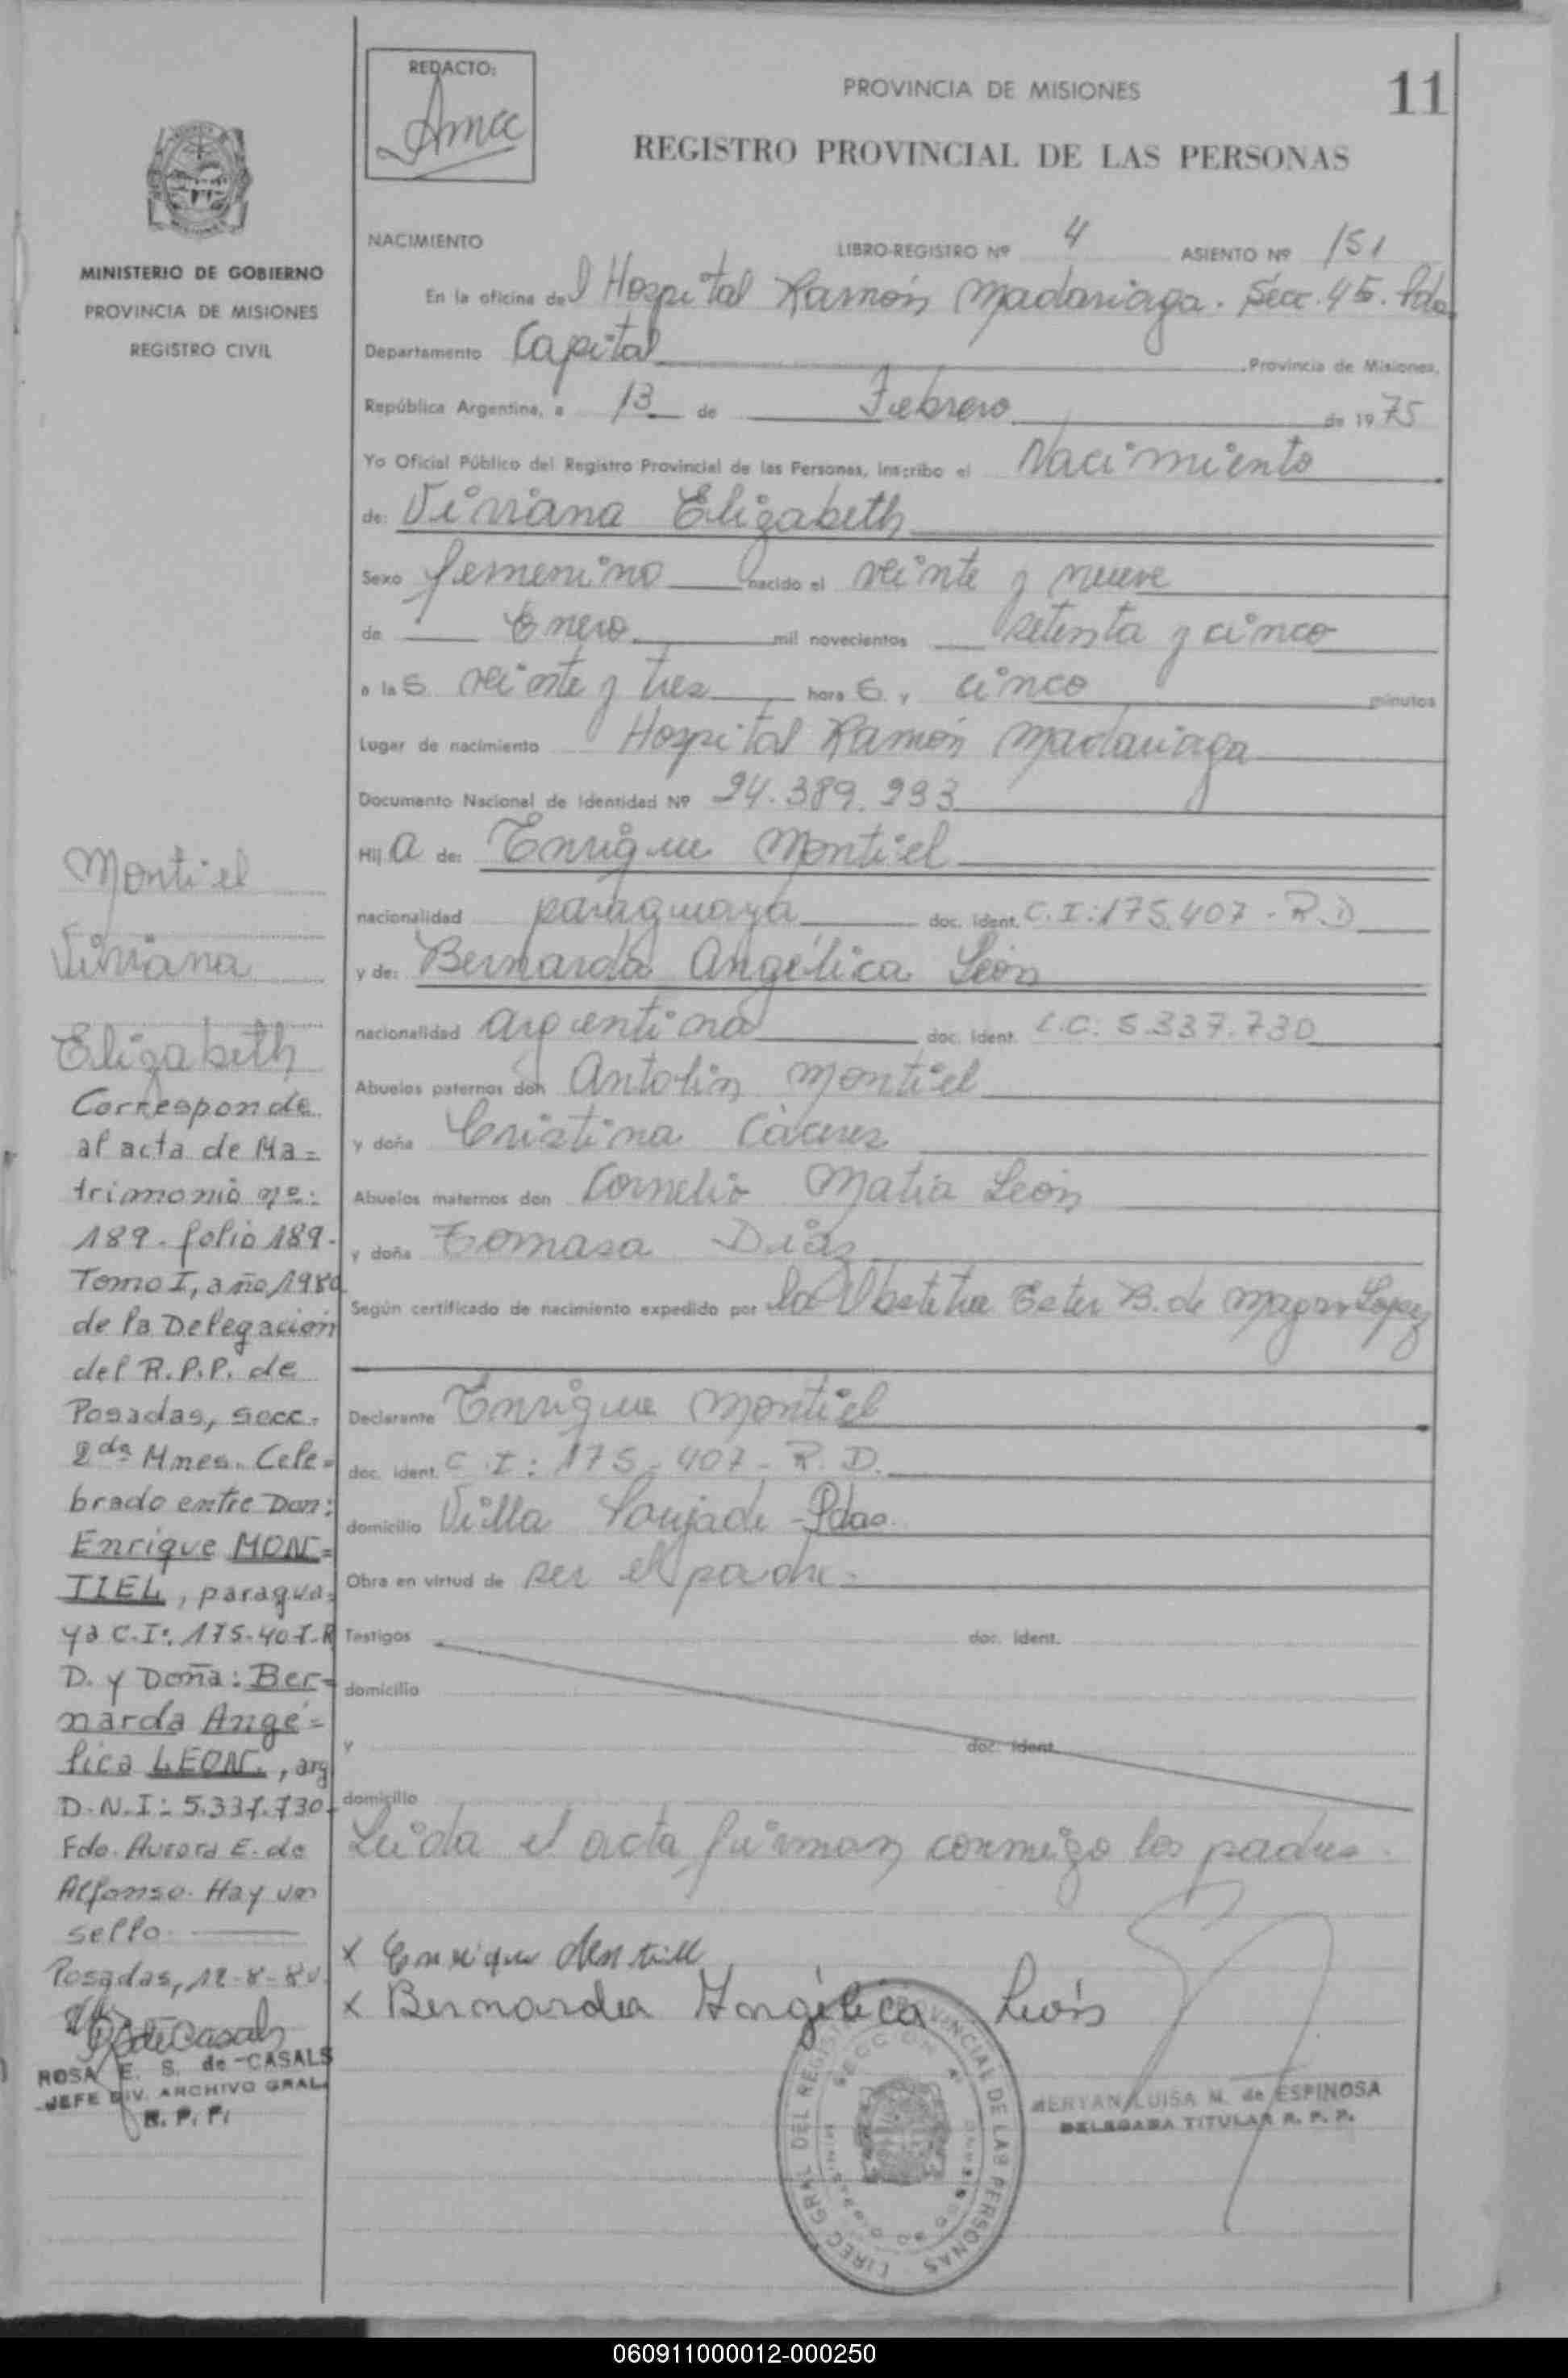 REDACTO:
PROVINCIA DE MISIONES
11
REGISTRO PROVINCIAL DE LAS PERSONAS
MINISTERIO DE GOBIERNO
PROVINCIA DE MISIONES
REGISTRO CIVIL
NACIMIENTO LIBRO-REGISTRO Nº 4 ASIENTO Nº 151
En la oficina del Hospital Ramón Madariaga. Secc. 45. Pdas
Departamento Capital Provincia de Misiones,
República Argentina, a 13 de Febrero de 1975
Yo Oficial Público del Registro Provincial de las Personas, inscribo el Nacimiento
de: Viviana Elizabeth
Sexo femenino nacido el veinte y nueve
de Enero mil novecientos setenta y cinco
a las veinte y tres horas y cinco minutos
Lugar de nacimiento Hospital Ramón Madariaga
Documento Nacional de Identidad Nº 24.389.233
Hija de: Enrique Montiel
nacionalidad paraguaya doc. ident. C.I:175.407-R.D
y de: Bernarda Angélica León
nacionalidad argentina doc. ident. L.C. 5.337.730
Abuelos paternos don Antolín Montiel
y doña Cristina Cáceres
Abuelos maternos don Cornelio Matia León
y doña Tomasa Diaz
Según certificado de nacimiento expedido por la Obstetra Ester B. de López
Declarante Enrique Montiel
doc. ident. C.I: 175-407-R.D.
domicilio Villa Pdas.
Obra en virtud de ser el padre.
Testigos doc. ident.
domicilio
y doc. ident.
domicilio
Leída el acta firman conmigo los padres.
x Enrique Montiel
x Bernardea Angélica León
DIREC. GRAL. DEL REGISTRO PROVINCIAL DE LAS PERSONAS
MERYAN LUISA M. de ESPINOSA
DELEGADA TITULAR R. P. P.
Montiel
Viviana
Elizabeth
Corresponde
al acta de Ma=
trimonio nº:
189. folio 189.
Tomo I, año 1980
de la Delegación
del R.P.P. de
Posadas, secc.
2da Mnes. Cele=
brado entre Don:
Enrique MON=
TIEL, paragua=
ya C.I: 175-407-R
D. y Doña: Ber=
narda Angé=
lica LEON, arg
D.N.I: 5.337.730.
Fdo. Aurora E. de
Alfonso. Hay un
sello.
Posadas, 12-8-80
ROSA E. S. de CASALS
JEFE DIV. ARCHIVO GRAL.
R. P. P.
060911000012-000250